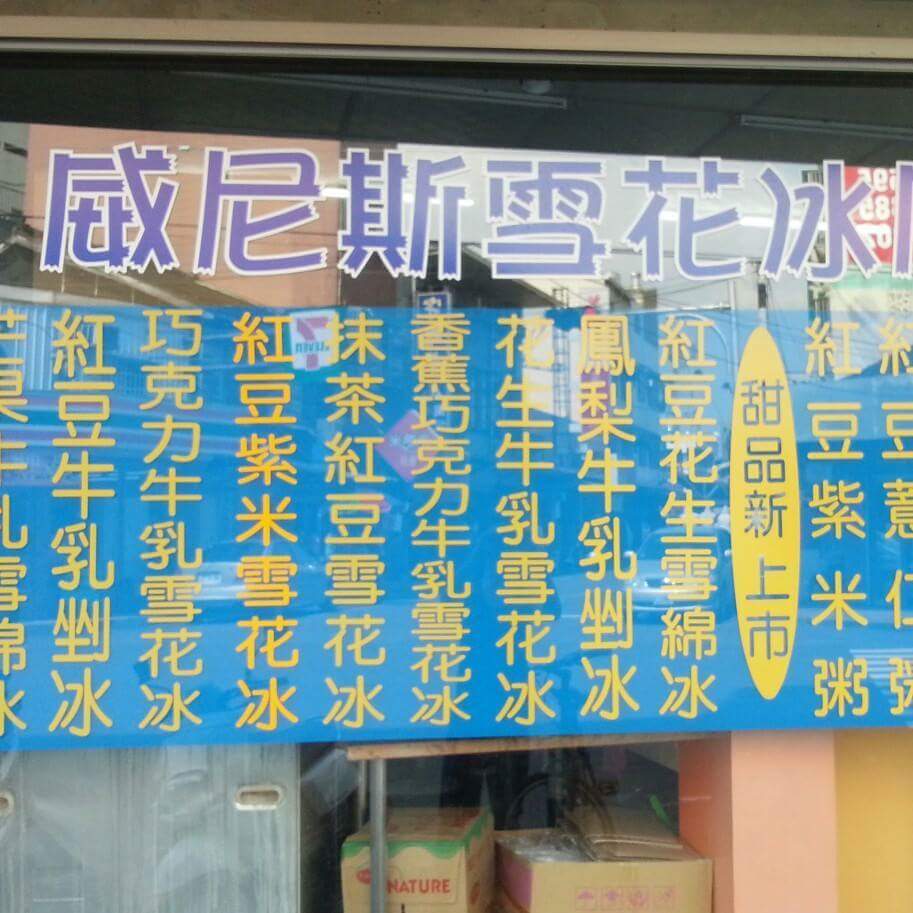 威尼斯雪花冰
紅豆薏仁粥
紅豆紫米粥
甜品新上市
紅豆花生雪綿冰
鳳梨牛乳剉冰
花生牛乳雪花冰
香蕉巧克力牛乳雪花冰
抹茶紅豆雪花冰
紅豆紫米雪花冰
巧克力牛乳雪花冰
紅豆牛乳剉冰
芒果牛乳雪綿冰
NATURE